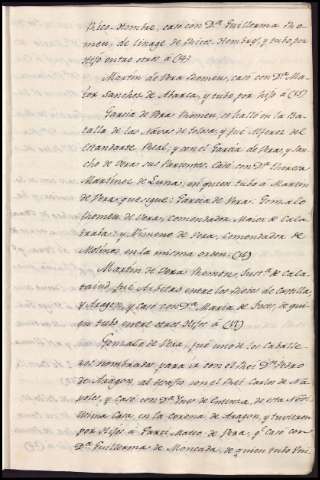 Rico-Hombre, casó con D.ª Guillerma Ro-
meu, de linage de Ricos-Hombres, y tubo por
Hijo entre otros á (14)
Martin de Vera Romeu, casó con D.ª Ma-
yor Sanchez de Abarca, y tubo por hijo á (15)
Garcia de Vera Romeu, se halló en la Ba-
talla de las Navas de Tolosa, y fué Alferez del
Estandarte Real, y con el Garcia de Vera, y San-
cho de Vera sus Parientes. Casó con D.ª
Martinez de Luna; en quien tubo á Martin
de Vera que sigue: Garcia de Vera: Gonzalo
Romeu de Vera, comendador Maior de Cala-
traba: y Ximeno de Vera, comendador de
Molinos en la misma orden. (16)
Martin de Vera Romeu, Just.ª de Cala-
taiud, fué Arbitro entre los Reies de Castilla,
y Aragon, y casó con D.ª Maria de Foces, de qui-
en tubo entre otros Hijos á (17)
Gonzalo de Vera, fué uno de los Caballe-
ros nombrados, para ir con el Rei D.n Pedro
de Aragon, al desafio con el Rei Carlos de Na-
poles, y casó con D.ª de Entenza, de esta Nobi-
lisima Casa, en la corona de Aragon, y tuvieron
por Hijos á Garci Mateo de Vera, q.e casó con
D.ª Guillerma de Moncada, de quien tubo